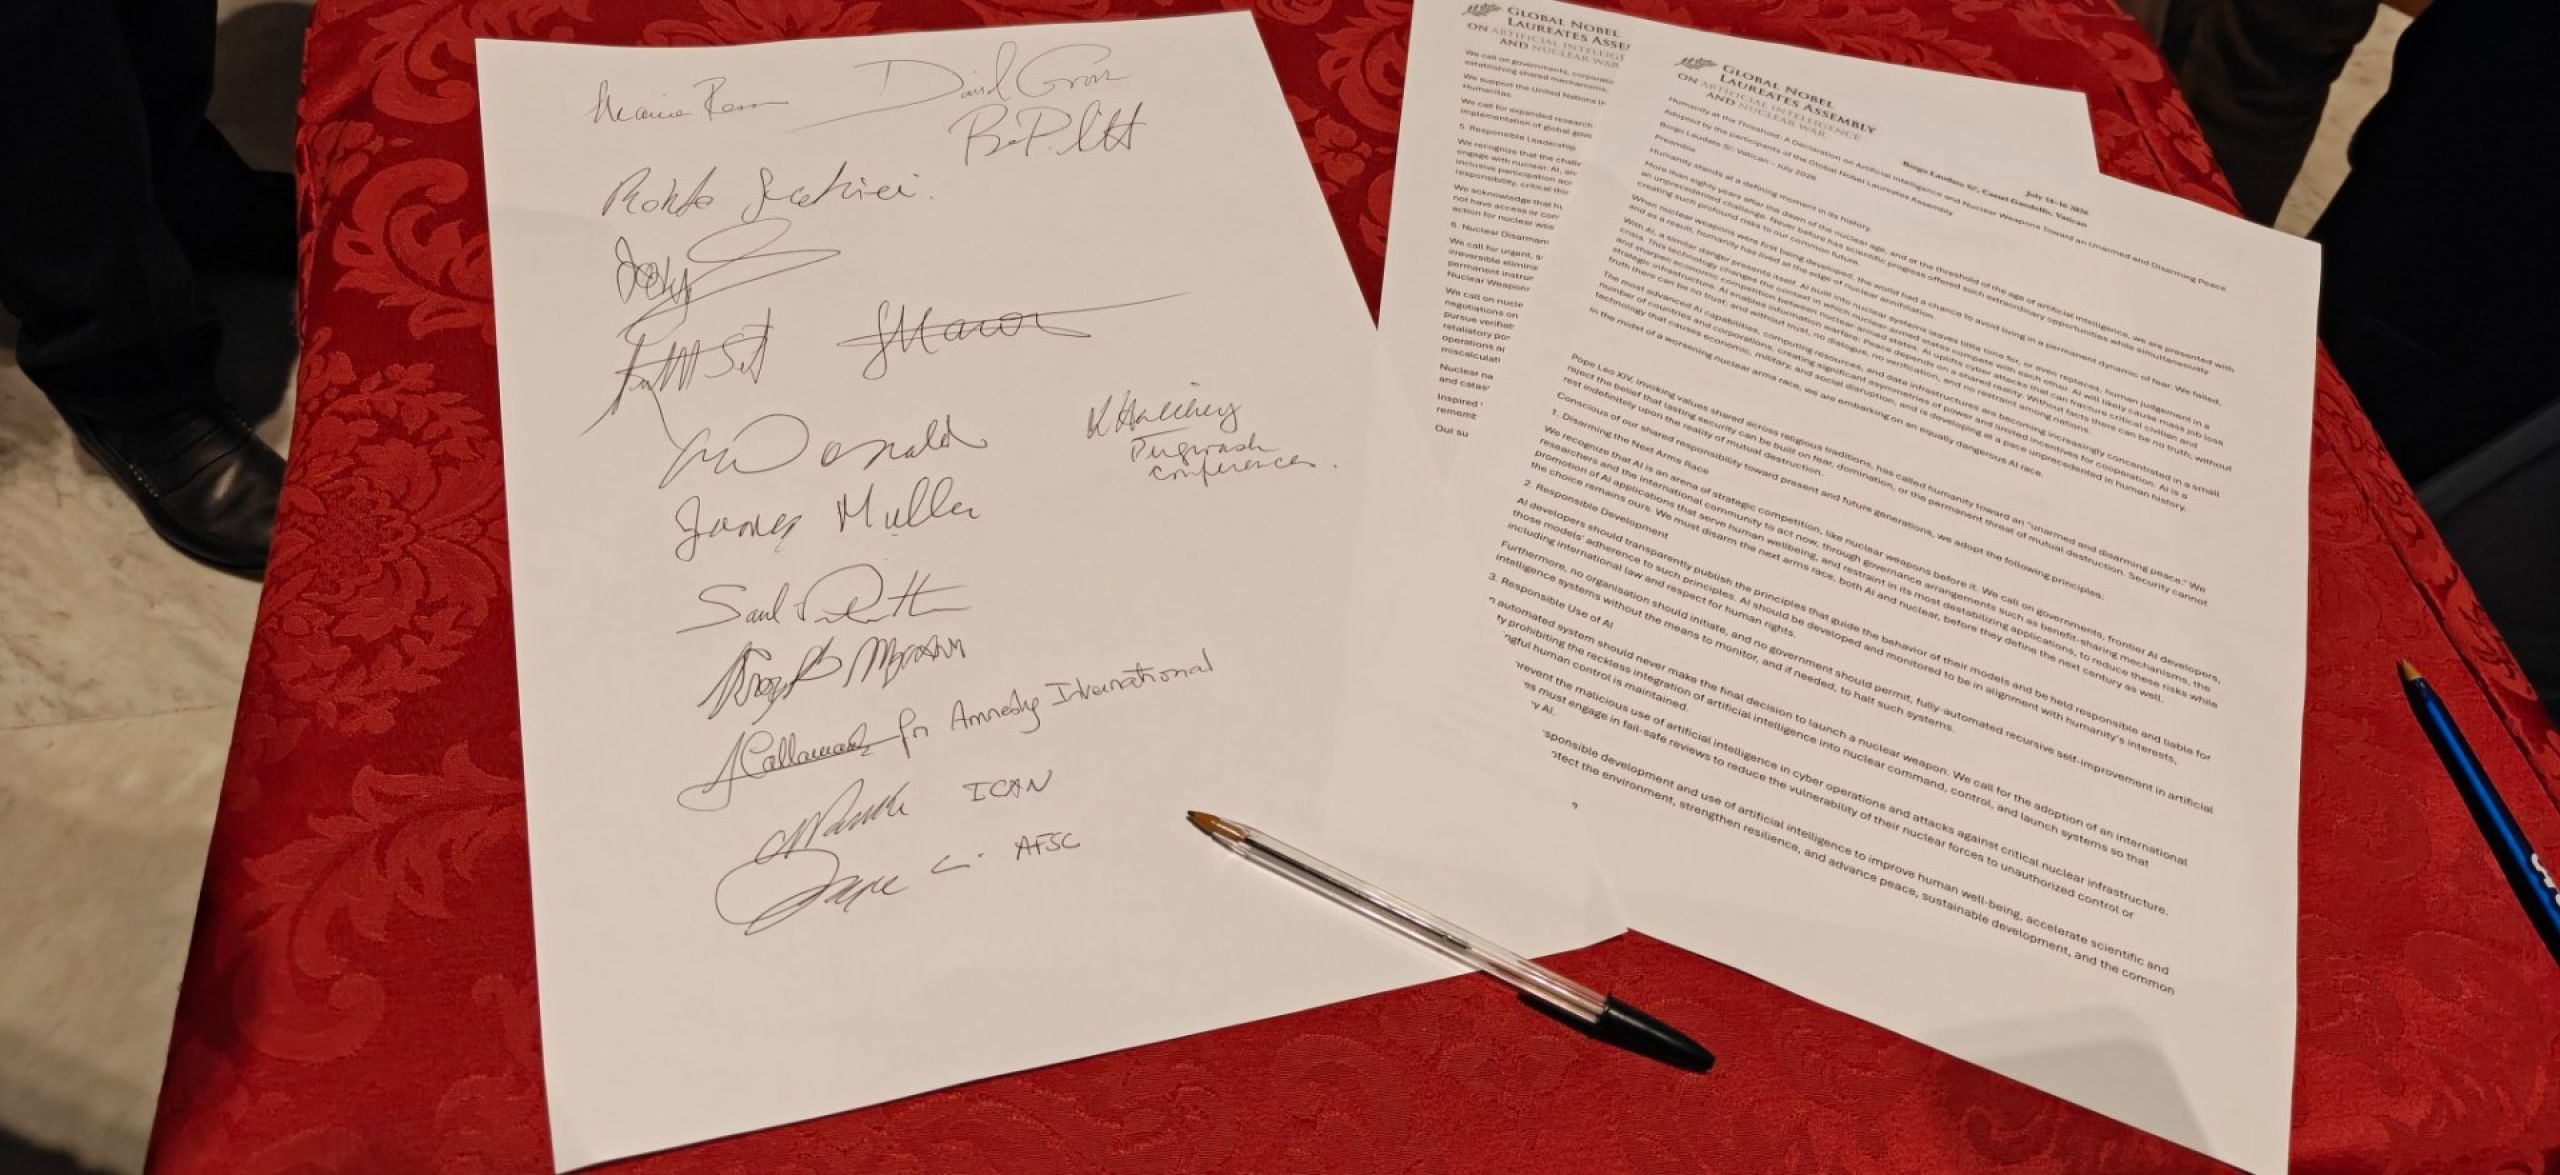 David Gross
James Muller
for Amnesty International
Pugwash
conferences.
ICAN
AFSC
GLOBAL NOBEL
LAUREATES ASSE
ON ARTIFICIAL INTELLIGE
AND NUCLEAR WAR
We call on governments, corporatio
establishing shared mechanisms
We support the United Nations in
Humanitas.
We call for expanded research
implementation of global gove
5. Responsible Leadership
We recognize that the challe
engage with nuclear, AI, an
inclusive participation acr
responsibility, critical thin
We acknowledge that hu
not have access or con
action for nuclear wea
6. Nuclear Disarmam
We call for urgent, s
irreversible elimina
permanent instrum
Nuclear Weapons
We call on nucle
negotiations on
pursue verifiab
retaliatory po
operations a
miscalculati
Nuclear na
and catas
Inspired
rememb
Our su
GLOBAL NOBEL
LAUREATES ASSEMBLY
ON ARTIFICIAL INTELLIGENCE
AND NUCLEAR WAR
July 14-16 2026
Borgo Laudato Si', Castel Gandolfo, Vatican
Humanity at the Threshold: A Declaration on Artificial Intelligence and Nuclear Weapons Toward an Unarmed and Disarming Peace
Adopted by the participants of the Global Nobel Laureates Assembly
Borgo Laudato Si', Vatican – July 2026
Preamble
Humanity stands at a defining moment in its history.
More than eighty years after the dawn of the nuclear age, and at the threshold of the age of artificial intelligence, we are presented with
an unprecedented challenge. Never before has scientific progress offered such extraordinary opportunities while simultaneously
creating such profound risks to our common future.
When nuclear weapons were first being developed, the world had a chance to avoid living in a permanent dynamic of fear. We failed,
and as a result, humanity has lived at the edge of nuclear annihilation.
With AI, a similar danger presents itself. AI built into nuclear systems leaves little time for, or even replaces, human judgement in a
crisis. This technology changes the context in which nuclear armed states compete with each other. AI will likely cause mass job loss
and sharpen economic competition between nuclear-armed states. AI uplifts cyber attacks that can fracture critical civilian and
strategic infrastructure. AI enables information warfare: Peace depends on a shared reality. Without facts there can be no truth; without
truth there can be no trust; and without trust, no dialogue, no verification, and no restraint among nations.
The most advanced AI capabilities, computing resources, and data infrastructures are becoming increasingly concentrated in a small
number of countries and corporations, creating significant asymmetries of power and limited incentives for cooperation. AI is a
technology that causes economic, military, and social disruption, and is developing at a pace unprecedented in human history.
In the midst of a worsening nuclear arms race, we are embarking on an equally dangerous AI race.
Pope Leo XIV, invoking values shared across religious traditions, has called humanity toward an "unarmed and disarming peace." We
reject the belief that lasting security can be built on fear, domination, or the permanent threat of mutual destruction. Security cannot
rest indefinitely upon the reality of mutual destruction.
Conscious of our shared responsibility toward present and future generations, we adopt the following principles:
1. Disarming the Next Arms Race
We recognize that AI is an arena of strategic competition, like nuclear weapons before it. We call on governments, frontier AI developers,
researchers and the international community to act now, through governance arrangements such as benefit-sharing mechanisms, the
promotion of AI applications that serve human wellbeing, and restraint in its most destabilizing applications, to reduce these risks while
the choice remains ours. We must disarm the next arms race, both AI and nuclear, before they define the next century as well.
2. Responsible Development
AI developers should transparently publish the principles that guide the behavior of their models and be held responsible and liable for
those models' adherence to such principles. AI should be developed and monitored to be in alignment with humanity's interests,
including international law and respect for human rights.
Furthermore, no organisation should initiate, and no government should permit, fully-automated recursive self-improvement in artificial
intelligence systems without the means to monitor, and if needed, to halt such systems.
3. Responsible Use of AI
automated system should never make the final decision to launch a nuclear weapon. We call for the adoption of an international
ty prohibiting the reckless integration of artificial intelligence into nuclear command, control, and launch systems so that
ngful human control is maintained.
revent the malicious use of artificial intelligence in cyber operations and attacks against critical nuclear infrastructure.
es must engage in fail-safe reviews to reduce the vulnerability of their nuclear forces to unauthorized control or
y AI.
sponsible development and use of artificial intelligence to improve human well-being, accelerate scientific and
otect the environment, strengthen resilience, and advance peace, sustainable development, and the common